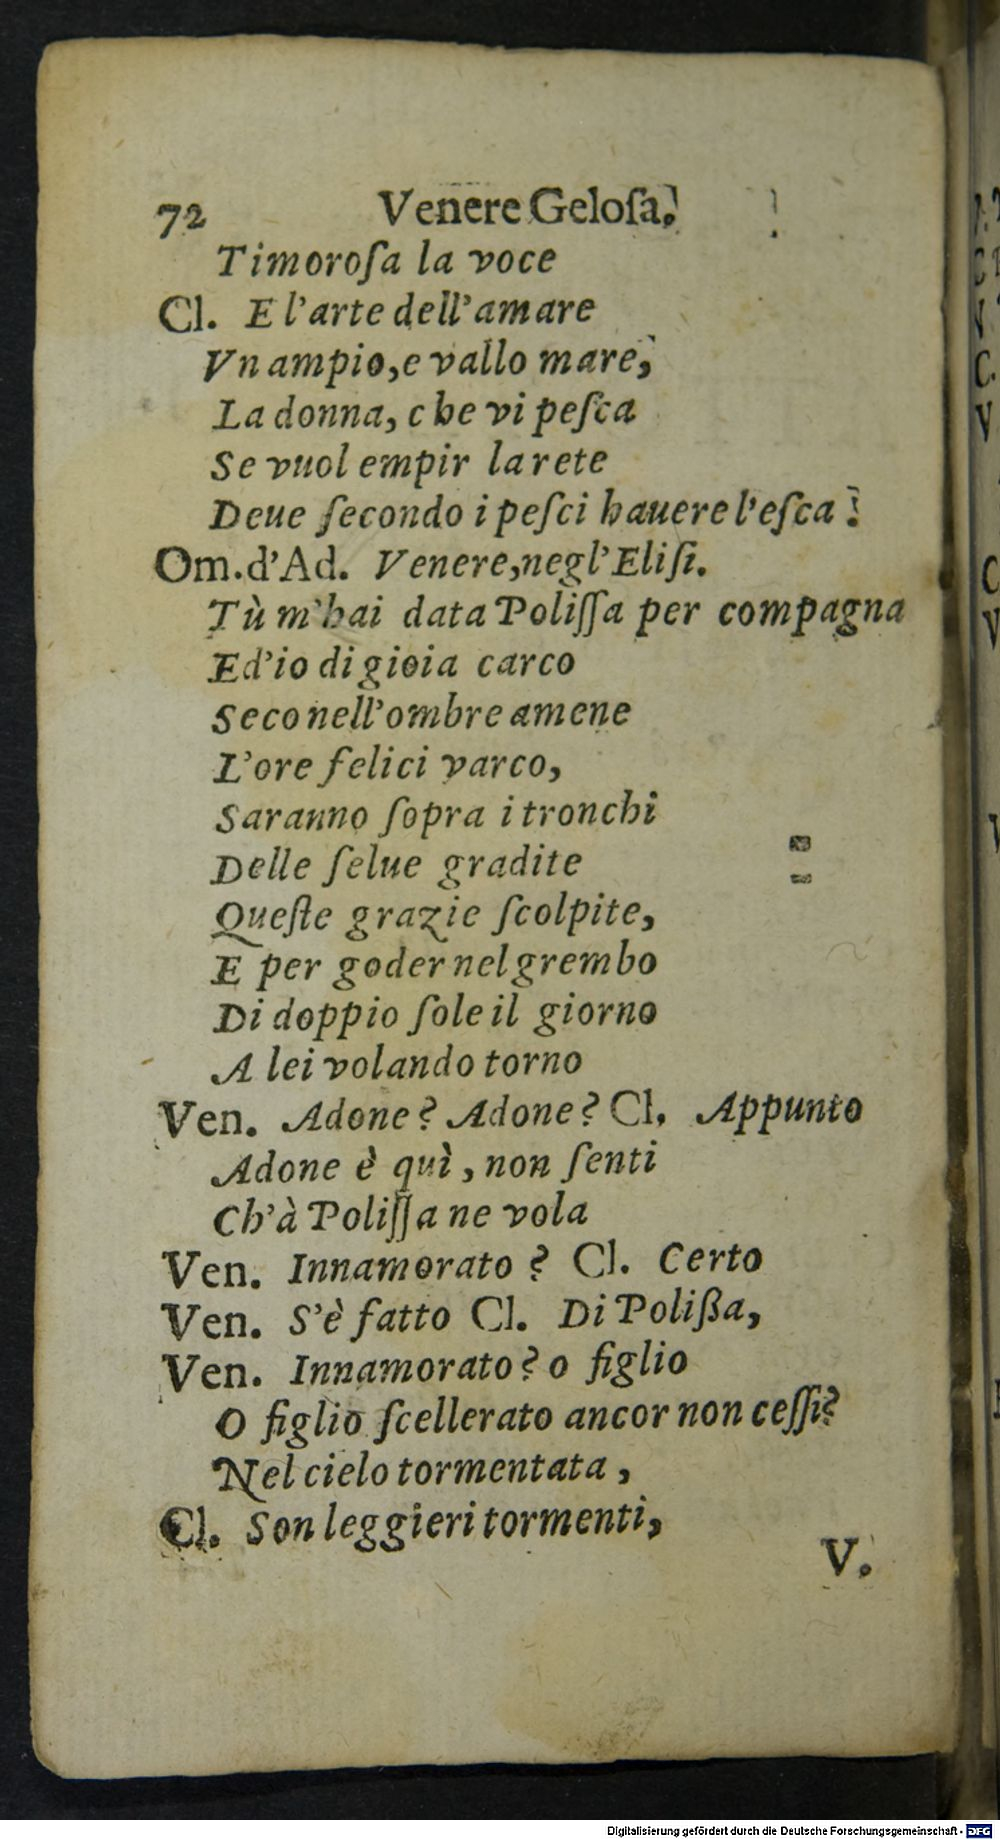 72 Venere Gelosa.
Timoroſa la voce
Cl. E l'arte dell'amare
Vn ampio, e vallo mare,
La donna, che vi peſca
Se vuol empir la rete
Deue ſecondo i peſci hauere l'eſca.
Om.d'Ad. Venere, negl'Eliſi.
Tù m'hai data Poliſſa per compagna
Ed'io di gioia carco
Seco nell'ombre amene
L'ore felici varco,
Saranno ſopra i tronchi
Delle ſelue gradite
Queſte grazie ſcolpite,
E per goder nel grembo
Di doppio ſole il giorno
A lei volando torno
Ven. Adone? Adone? Cl. Appunto
Adone è quì, non ſenti
Ch'à Poliſſa ne vola
Ven. Innamorato? Cl. Certo
Ven. S'è fatto Cl. Di Polißa,
Ven. Innamorato? o figlio
O figlio ſcellerato ancor non ceſſi?
Nel cielo tormentata,
Cl. Son leggieri tormenti,
V.
Digitalisierung gefördert durch die Deutsche Forschungsgemeinschaft - DFG